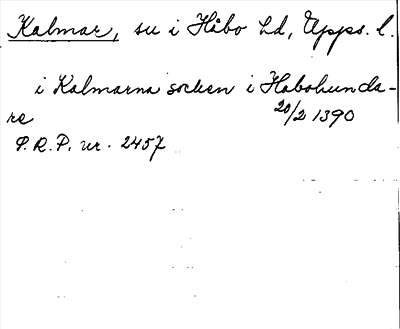 Kalmar, sn i Håbo hd, Upps. l.
i Kalmarna socken i Habohunda-
re 20/2 1390
P.R.P. nr. 2457